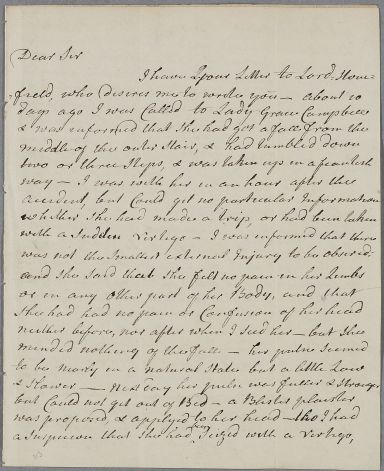 Dear Sir
I have Your Letter to Lord Stone-
field, who desires me to write you – about 10
days ago I was Called to Lady Grace Campbell
& was informed that She had got a fall from the
middle of the outer Stair, & had tumbled down
two or three Steps, & was taken up in a faintish
way – I was with her in an hour after this
accident but Could get no particular Information
whither She had made a trip, or had been taken
with a Sudden Vertigo – I was informed that there
was not the Smallest external Injury to be observed
and She Said that She felt no pain in her Limbs
or in any other part of her Body, and that
She had had no pain or Confusion of her head
neither before, nor after when I Seed her – but She
minded nothing of the fall – her pulse Seemed
to be mostly in a natural State but a little Low
& Slower – Next day her pulse was fuller & Stronger
but Could not get out of Bed – a Blister plaister
was proposed, & applyed to her head – tho I had
a Suspicion that She had been Seized with a Vertigo,